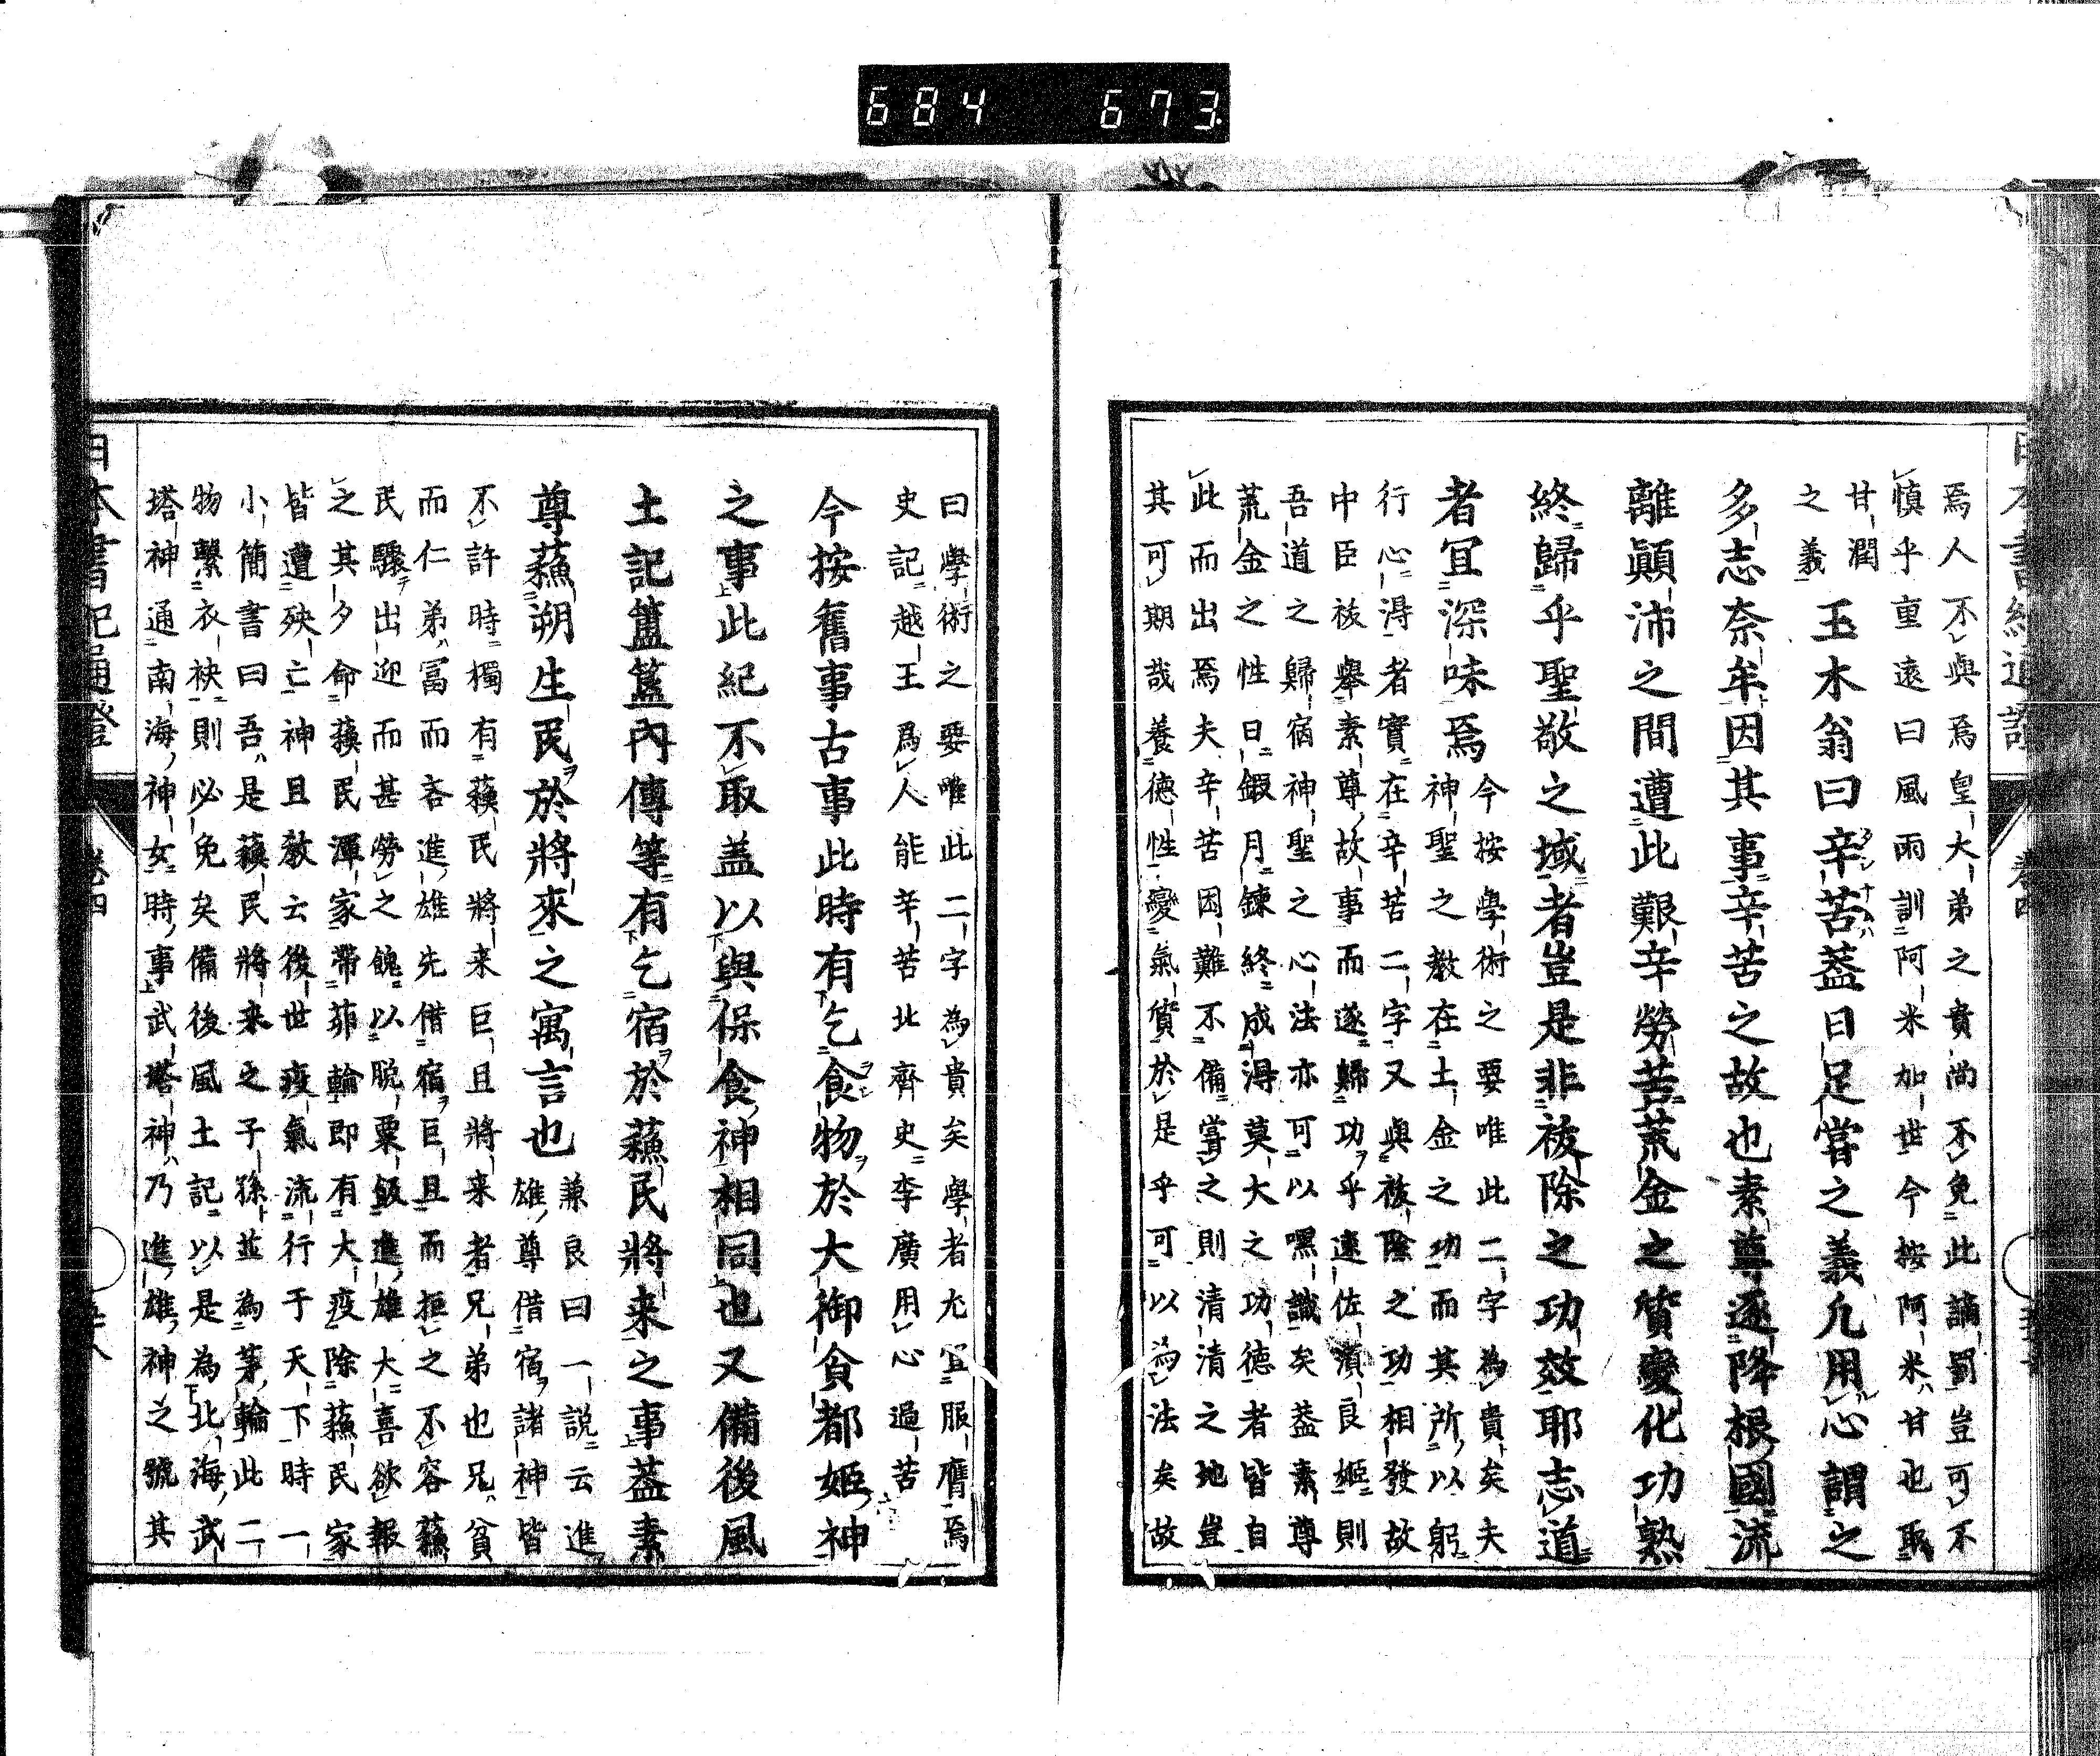 684 673
焉人不與焉皇大弟之貴尚不免此謫罰豈可不
慎乎重遠曰風雨訓阿米加世今按阿米甘也取
甘潤
之義
玉木翁曰辛苦蓋曰足嘗之義凡用心謂之
多志奈牟因其事辛苦之故也素尊逐降根國流
離顛沛之間遭此艱辛勞苦荒金之質變化功熟
終歸乎聖敬之域者豈是非祓除之功效耶志道
者宜深味焉
今按學術之要唯此二字為貴矣夫
神聖之教在土金之功而其所以躬
行心得者實在辛苦二字又與祓除之功相發故
中臣祓舉素尊故事而遂歸功乎速佐須良姬則
吾道之歸宿神聖之心法亦可以嘿識矣蓋素尊
荒金之性日鍜月鍊終成得莫大之功德者皆自
此而出焉夫辛苦困難不備嘗之則清清之地豈
其可期哉養德性變氣質於是乎可以為法矣故
曰學術之要唯此二字為貴矣學者尤宜服膺焉
史記越王爲人能辛苦北齊史李廣用心過苦
今按舊事古事此時有乞食物於大御食都姬神
之事此紀不取盖以與保食神相同也又備後風
土記簠簋內傳等有乞宿於蘓民將来之事蓋素
尊蘓朔生民於將來之寓言也
兼良曰一說云進
雄尊借宿諸神皆
不許時獨有蘓民將来巨且將来者兄弟也兄貧
而仁弟富而吝進雄先借宿巨且而拒之不容蘓
民驟出迎而甚勞之餽以脫粟飯進雄大喜欲報
之其夕命蘓民渾家帶茆輪即有大疫除蘓民家
皆遭殃亡神且教云後世疫氣流行于天下時一
小簡書曰吾是蘓民將来之子孫並為茅輪此二
物繫衣袂則必免矣備後風土記以是為北海武
塔神通南海神女時事武塔神乃進雄神之號其
日本書紀通證
卷四